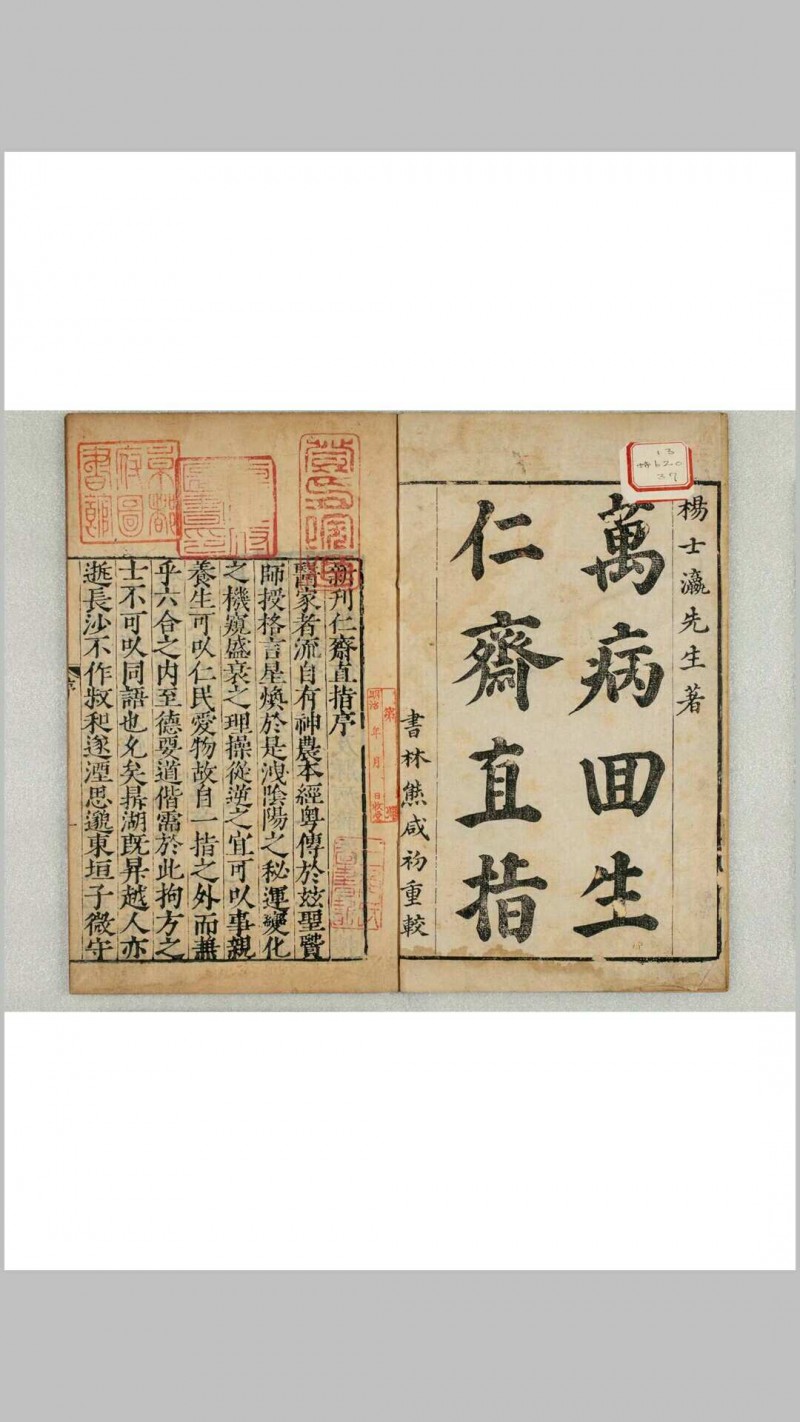 楊士瀛先生著
萬病回生
仁齋直指
書林熊咸初重較
新刊仁齋直指序
醫家者流自有神農本經粤傳於玆聖賢
師授格言星煥於是洩陰陽之秘運變化
之機窺盛衰之理操從逆之宜可㕥事親
養生可㕥仁民愛物故自一指之外而無
乎六合之内至德要道偕需於此拘方之
士不可㕥同語也允矣鼎湖既昇越人亦
逝長沙不作叔和遂湮思邈東垣子微守
序
一
京都
府圖
書館
13
特620
37
明治 年 月 日